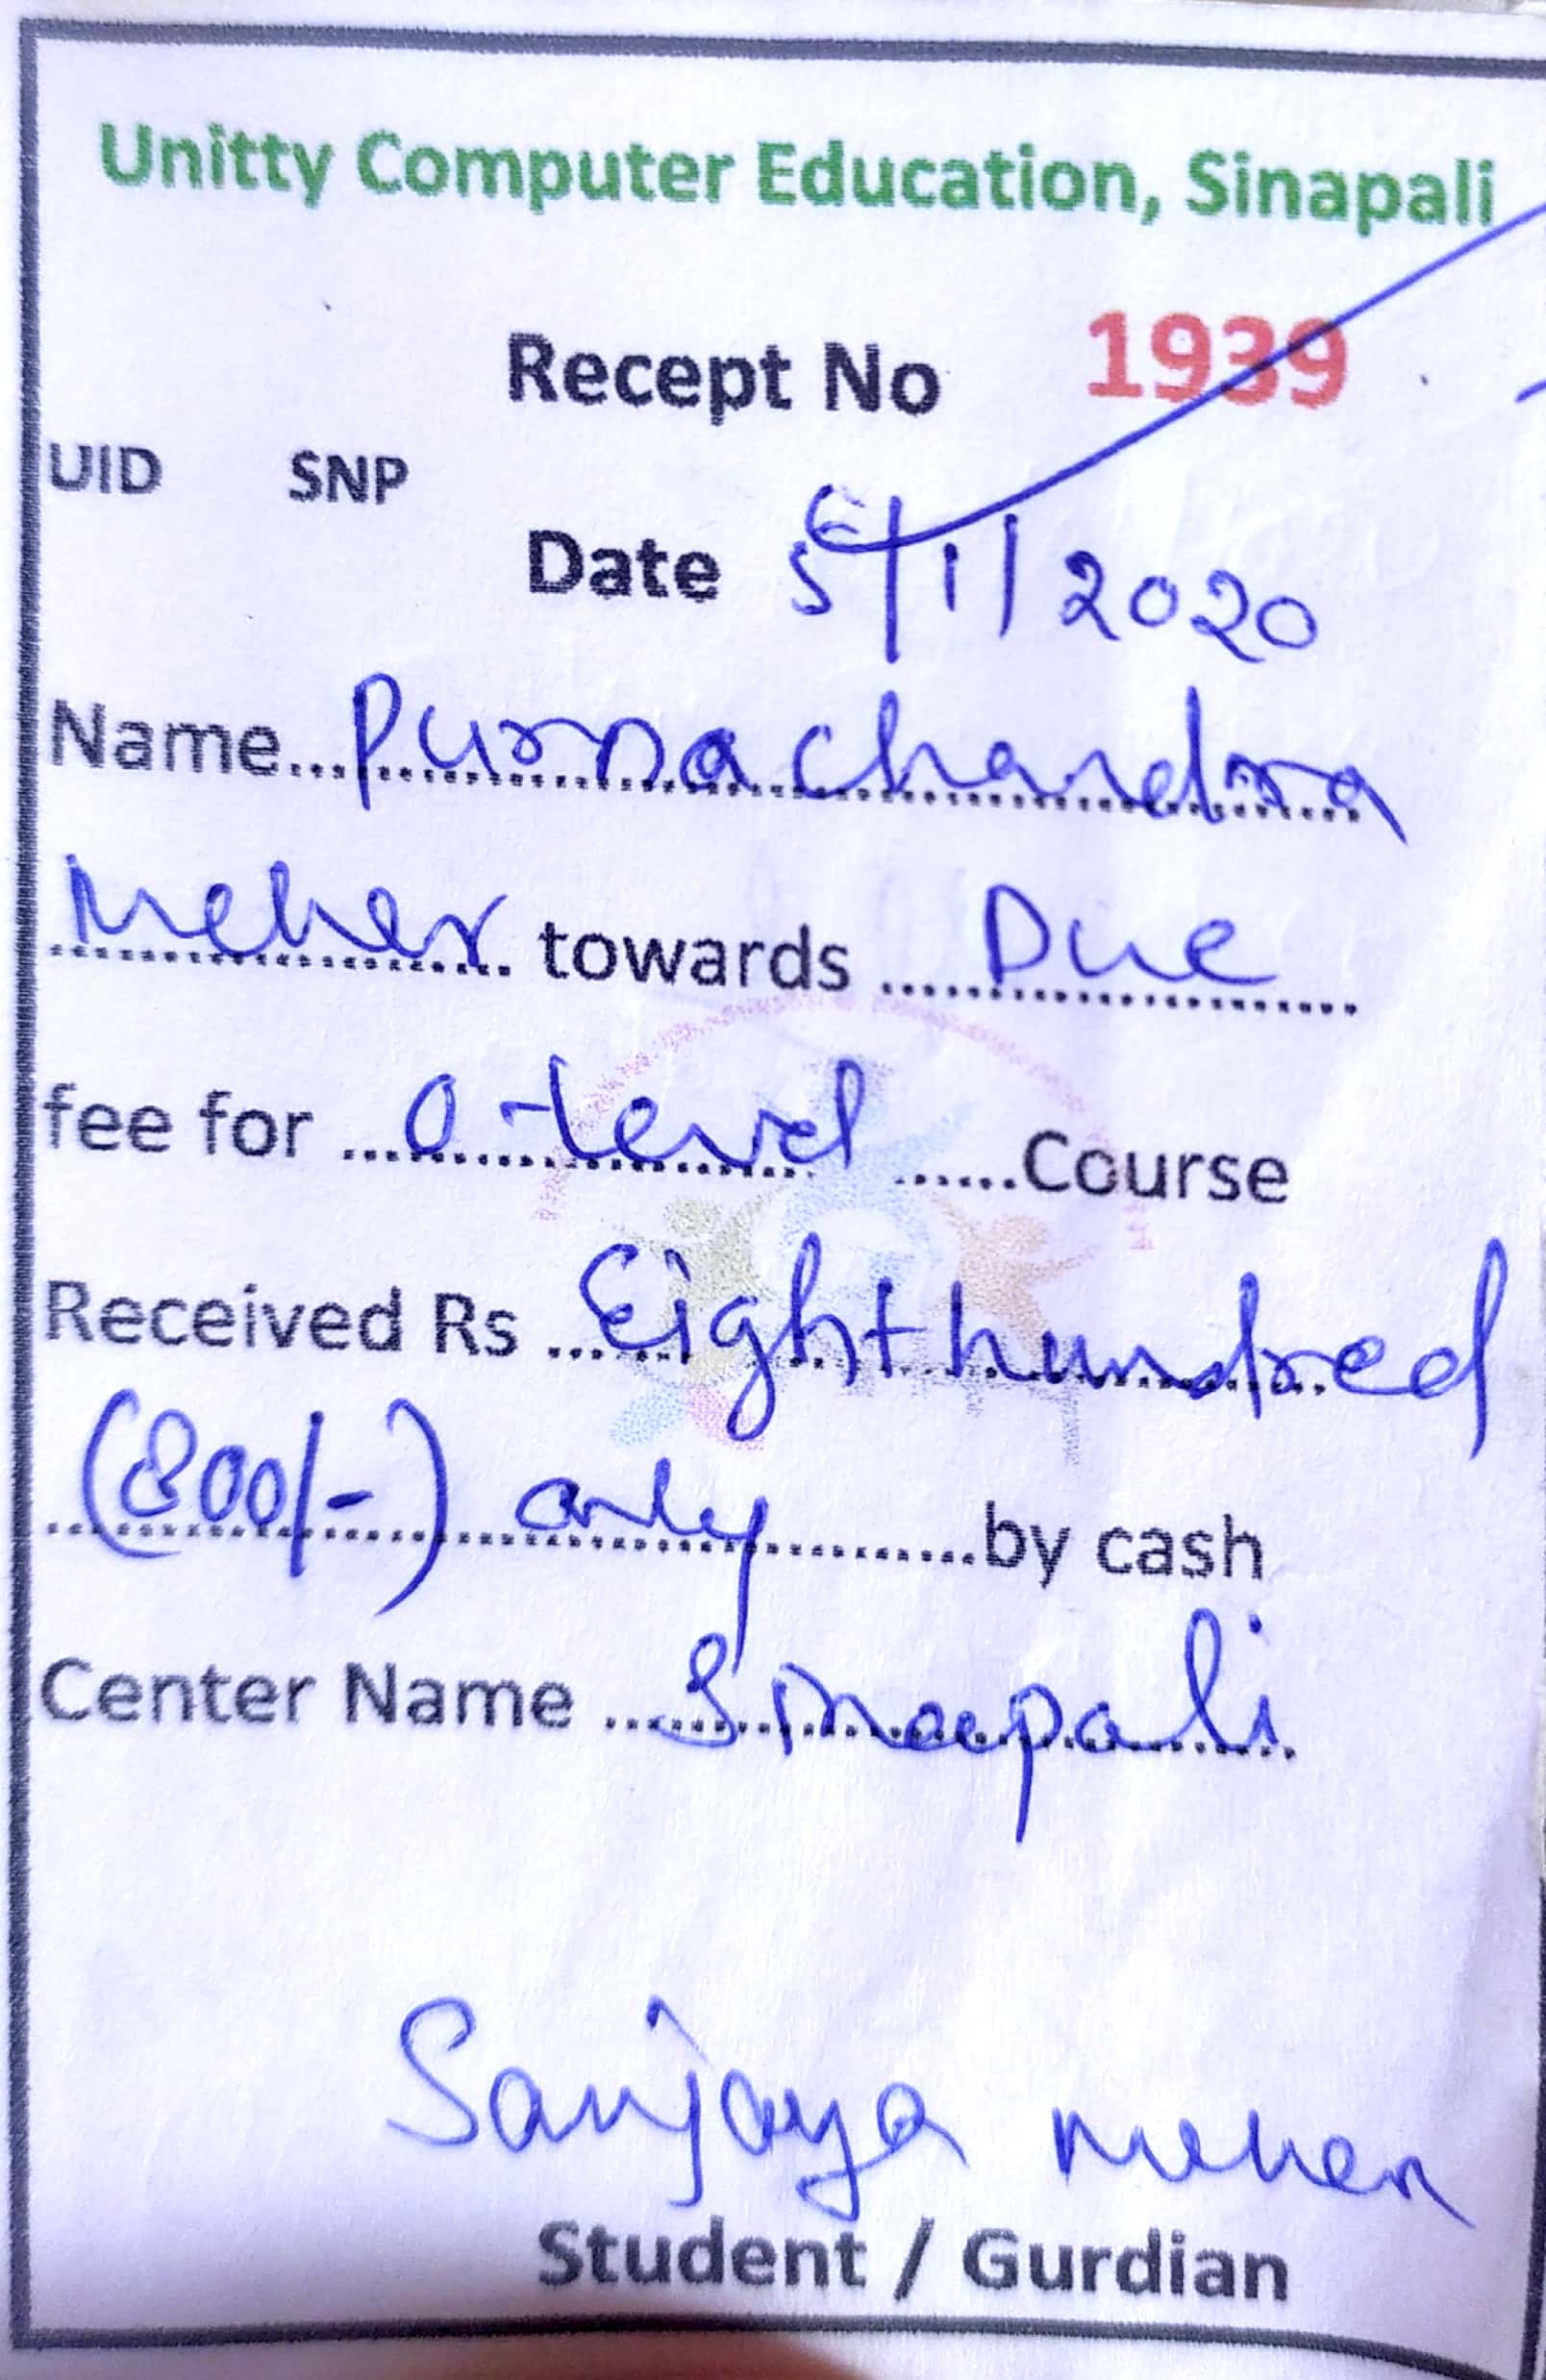 Unitty Computer Education, Sinapali
Recept No 1939
UID SNP
Date 5/1/2020
Name...Purna chandra
Meher towards ....Due
fee for ....O-Level ......Course
Received Rs ....Eight hundred
(800/-) only............by cash
Center Name ....Sinapali
Sanjaya meher
Student / Gurdian